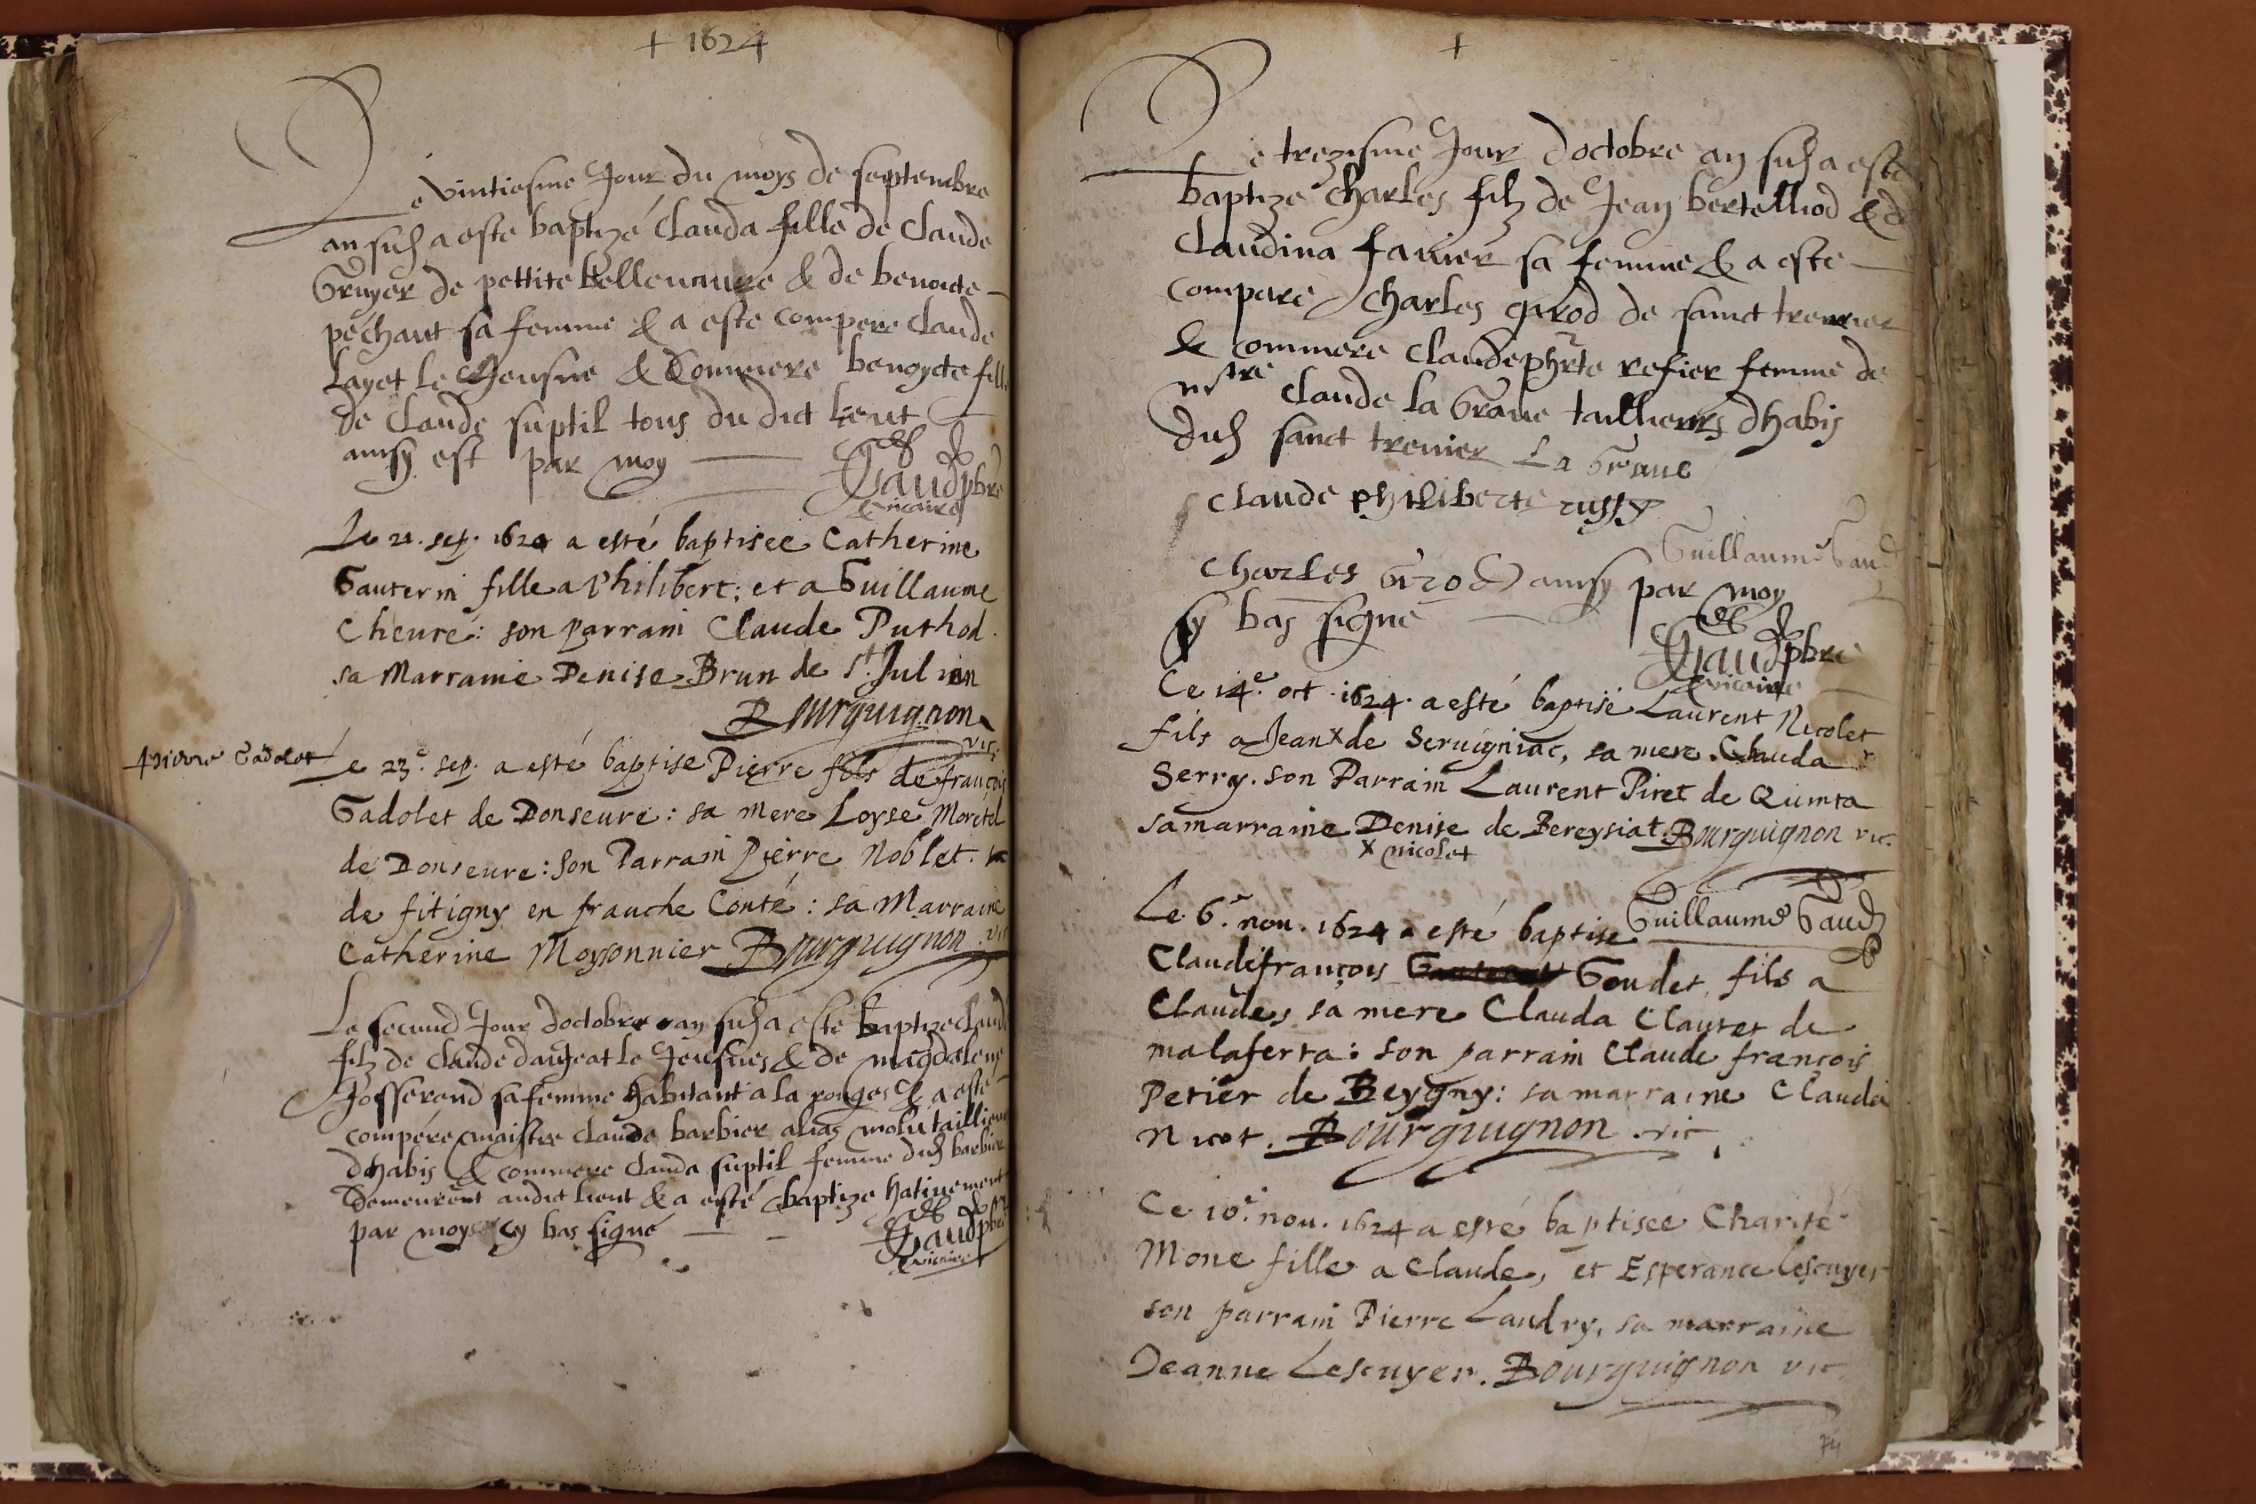 + 1624
Le vintiesme Jour du moys de septembre
an sus a este baptizé Clauda fille de Claude
Gruyer de pettite bellevauvre & de benoicte
pechaut sa femme & a este compere Claude
Layet le Jeusne & Commere benoycte fille
de Claude suptil tous du dict lieut
ainsy est par moy
Gaud pbre
& vicaire
Le 21. sep. 1624 a esté baptisee Catherine
Gauterin fille a Philibert: et a Guillaume
Cheuré: son parrain Claude Puthod.
sa Marraine Denise Brun de st Julien
Bourguignon
vic.
+ pierre Gadolet
Le 23.e sep. a esté baptise Pierre fils de françois
Gadolet de Donseure: sa mere Loyse Moretel
de Donseure: son Parrain Pierre Noblet.
de fitigny en franche Conté: sa Marraine
Catherine Moysonnier Bourguignon vic
Le second Jour doctobre an sus a este baptize Claude
filz de Claude daujeat le Jeusnes & de magdalene
Josserand sa femme habitant a la ronges & a este
compére maistre Claude barbier alias molu taillieur
dhabis & commere Clauda suptil femme dus barbier
Demeurent audict lieut & a esté baptize hativement
par moy cy bas signé
Gaud pbre
& vicaire
+
Le trezisme Jour doctobre an sus a esté
baptize Charles filz de Jean bertelliod & d
Claudina favier sa femme & a este
compere Charles grod de sainct trevier
& commere Claudephrte refier femme de
mtre Claude la Grave taillieurs dhabis
dus sanct trevier La Grave
Claude philiberte russy
Guillaume Gaud
Charles Grod ainsy par moy
cy bas signe
Gaud pbre
& vicaire
Ce 14.e oct. 1624. a esté baptisé Laurent Nicolet
fils a Jean x de Seruigniac, sa mere. Clauda
Serry. son Parrain Laurent Piret de Quinta
sa marraine Denise de Bereysiat. Bourguignon vic.
x nicolet
Guillaume Gaud
Le 6.e nou. 1624 a esté baptise
Claudefrançois Goudet, fils a
Claude, sa mere Clauda Clauret de
malaferta: son parrain Claude françois
Petier de Beygny: sa marraine Clauda
Nicot. Bourguignon vic.
Ce 10.e nou. 1624 a esté baptisee Charité
Mone fille a Claude, et Esperance Lescuyer
son parrain Pierre Laudry, sa marraine
Jeanne Lescuyer. Bourguignon vic
74